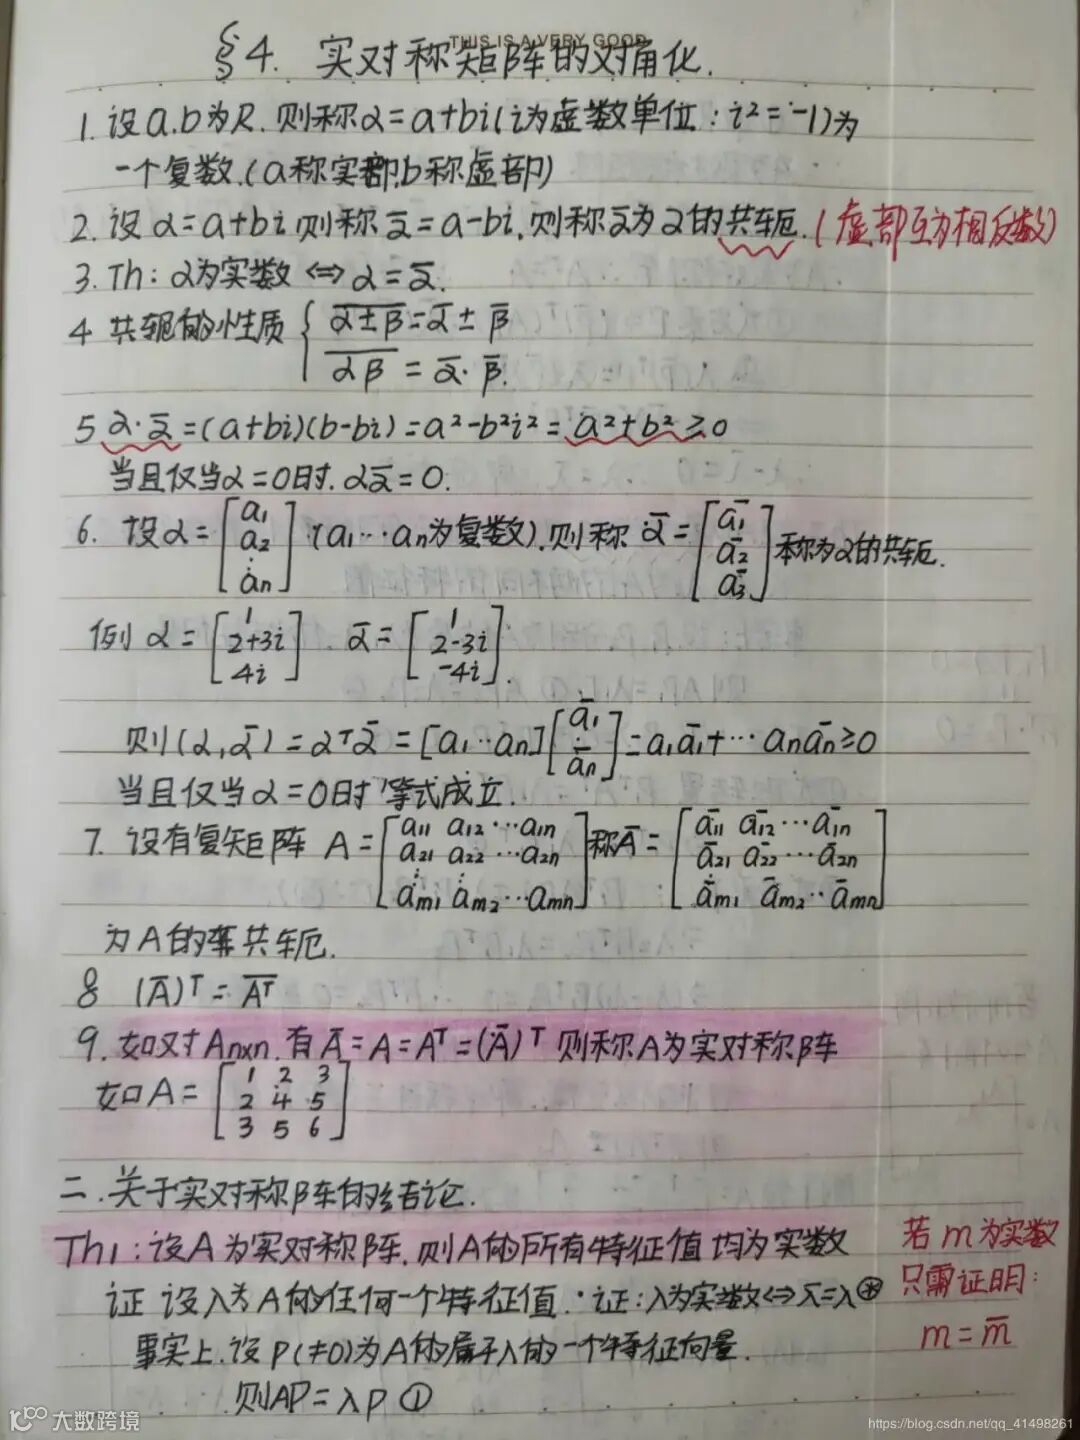 THIS IS A VERY GOOD
§4. 实对称矩阵的对角化.
1. 设a.b为R. 则称α=a+bi(i为虚数单位:i²=-1)为
一个复数.(a称实部,b称虚部)
2. 设α=a+bi,则称ᾱ=a-bi,则称ᾱ为α的共轭.(虚部互为相反数)
3. Th: α为实数⇔α=ᾱ.
4 共轭的小性质 { \overline{α±β}=ᾱ±β̄
\overline{αβ}=ᾱ·β̄.
5 α·ᾱ=(a+bi)(b-bi)=a²-b²i²=a²+b²≥0
当且仅当α=0时.αᾱ=0.
6. 设α=[a₁ a₂ ⋮ aₙ] (a₁…aₙ为复数).则称 ᾱ=[ā₁ ā₂ ā₃] 称为α的共轭.
例 α=[1 2+3i 4i] ᾱ=[1 2-3i -4i].
则(α,ᾱ)=αᵀᾱ=[a₁…aₙ][ā₁ āₙ]=a₁ā₁+…aₙāₙ≥0
当且仅当α=0时 等式成立.
7. 设有复矩阵 A=[a₁₁ a₁₂…a₁ₙ a₂₁ a₂₂…a₂ₙ ⋮ ⋮ aₘ₁ aₘ₂…aₘₙ]称Ā=[ā₁₁ ā₁₂…ā₁ₙ ā₂₁ ā₂₂…ā₂ₙ āₘ₁ āₘ₂…āₘₙ]
为A的共轭.
8 (Ā)ᵀ=\overline{Aᵀ}
9. 如对Aₙₓₙ.有Ā=A=Aᵀ=(Ā)ᵀ 则称A为实对称阵
如A=[1 2 3 2 4 5 3 5 6]
二.关于实对称阵的结论.
Th1:设A为实对称阵.则A的所有特征值均为实数
证 设λ为A的任何一个特征值.证:λ为实数⇔λ̄=λ⊛
事实上.设P(≠0)为A的属于λ的一个特征向量.
则AP=λP ①
若m为实数
只需证明:
m=m̄
大数跨境
https://blog.csdn.net/qq_41498261